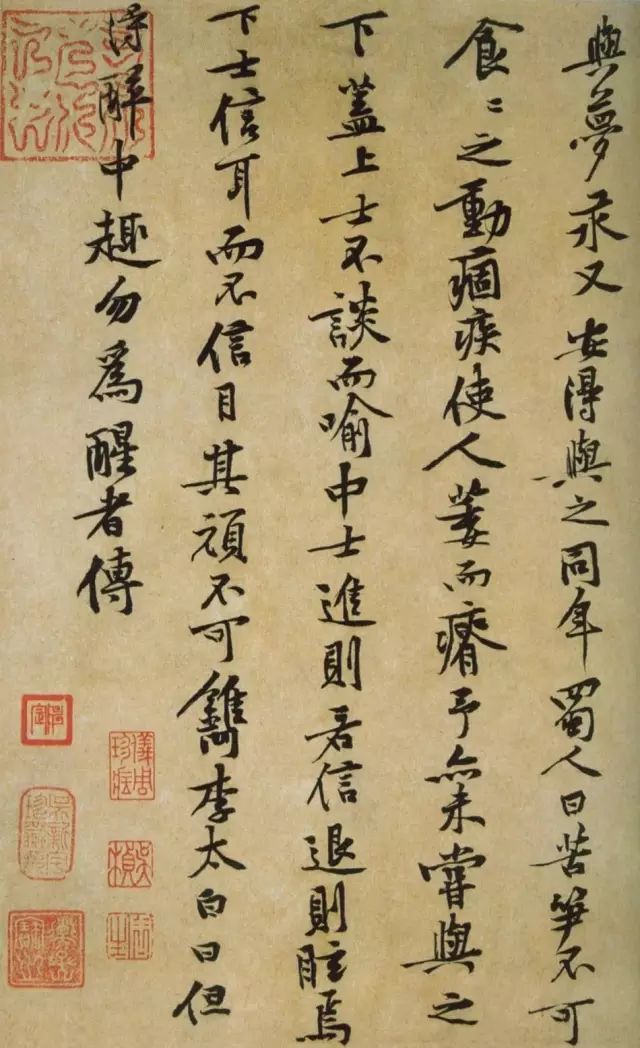 與夢永又安得與之同年蜀人曰苦笋不可
食〻之動痼疾使人萎而瘠予亦未嘗與之
下蓋上士不談而喻中士進則若信退則眩焉
下士信耳而不信目其頑不可鐫李太白曰但
得醉中趣勿爲醒者傳